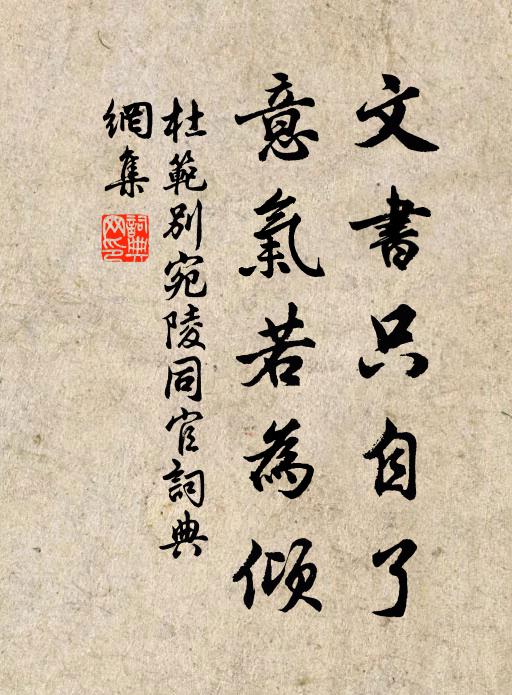 文書只自了
意氣若為傾
杜範別宛陵同官詞典
網集
詞典
网印